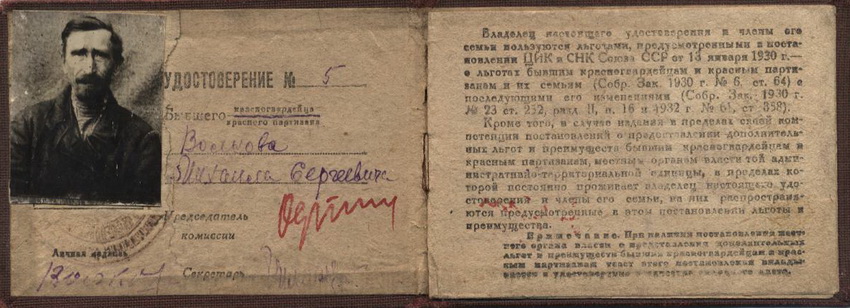 УДОСТОВЕРЕНИЕ № 5
Бывшего красногвардейца
красного партизана
Михаила Сергеевича
Председатель
комиссии
Личная подпись
Секретарь
Владелец настоящего удостоверения и члены его
семьи пользуются льготами, предусмотренными в поста-
новлении ЦИК и СНК Союза ССР от 13 января 1930 г.—
о льготах бывшим красногвардейцам и красным парти-
занам и их семьям (Собр. Зак. 1930 г. № 6, ст. 64) с
последующими его изменениями (Собр. Зак. 1930 г.
№ 23 ст. 252, разд. II, п. 16 и 1932 г. № 61, ст. 358).
Кроме того, в случае издания в пределах своей ком-
петенции постановлений о предоставлении дополнитель-
ных льгот и преимуществ бывшим красногвардейцам и
красным партизанам, местным органом власти той адми-
нистративно-территориальной единицы, в пределах ко-
торой постоянно проживает владелец настоящего удо-
стоверения и члены его семьи, на них распростра-
ются предусмотренные в этом постановлении льготы и
преимущества.
Примечание. При наличии постановления мест-
ного органа власти о предоставлении дополнительных
льгот и преимуществ бывшим красногвардейцам и крас-
ным партизанам текст этого постановления